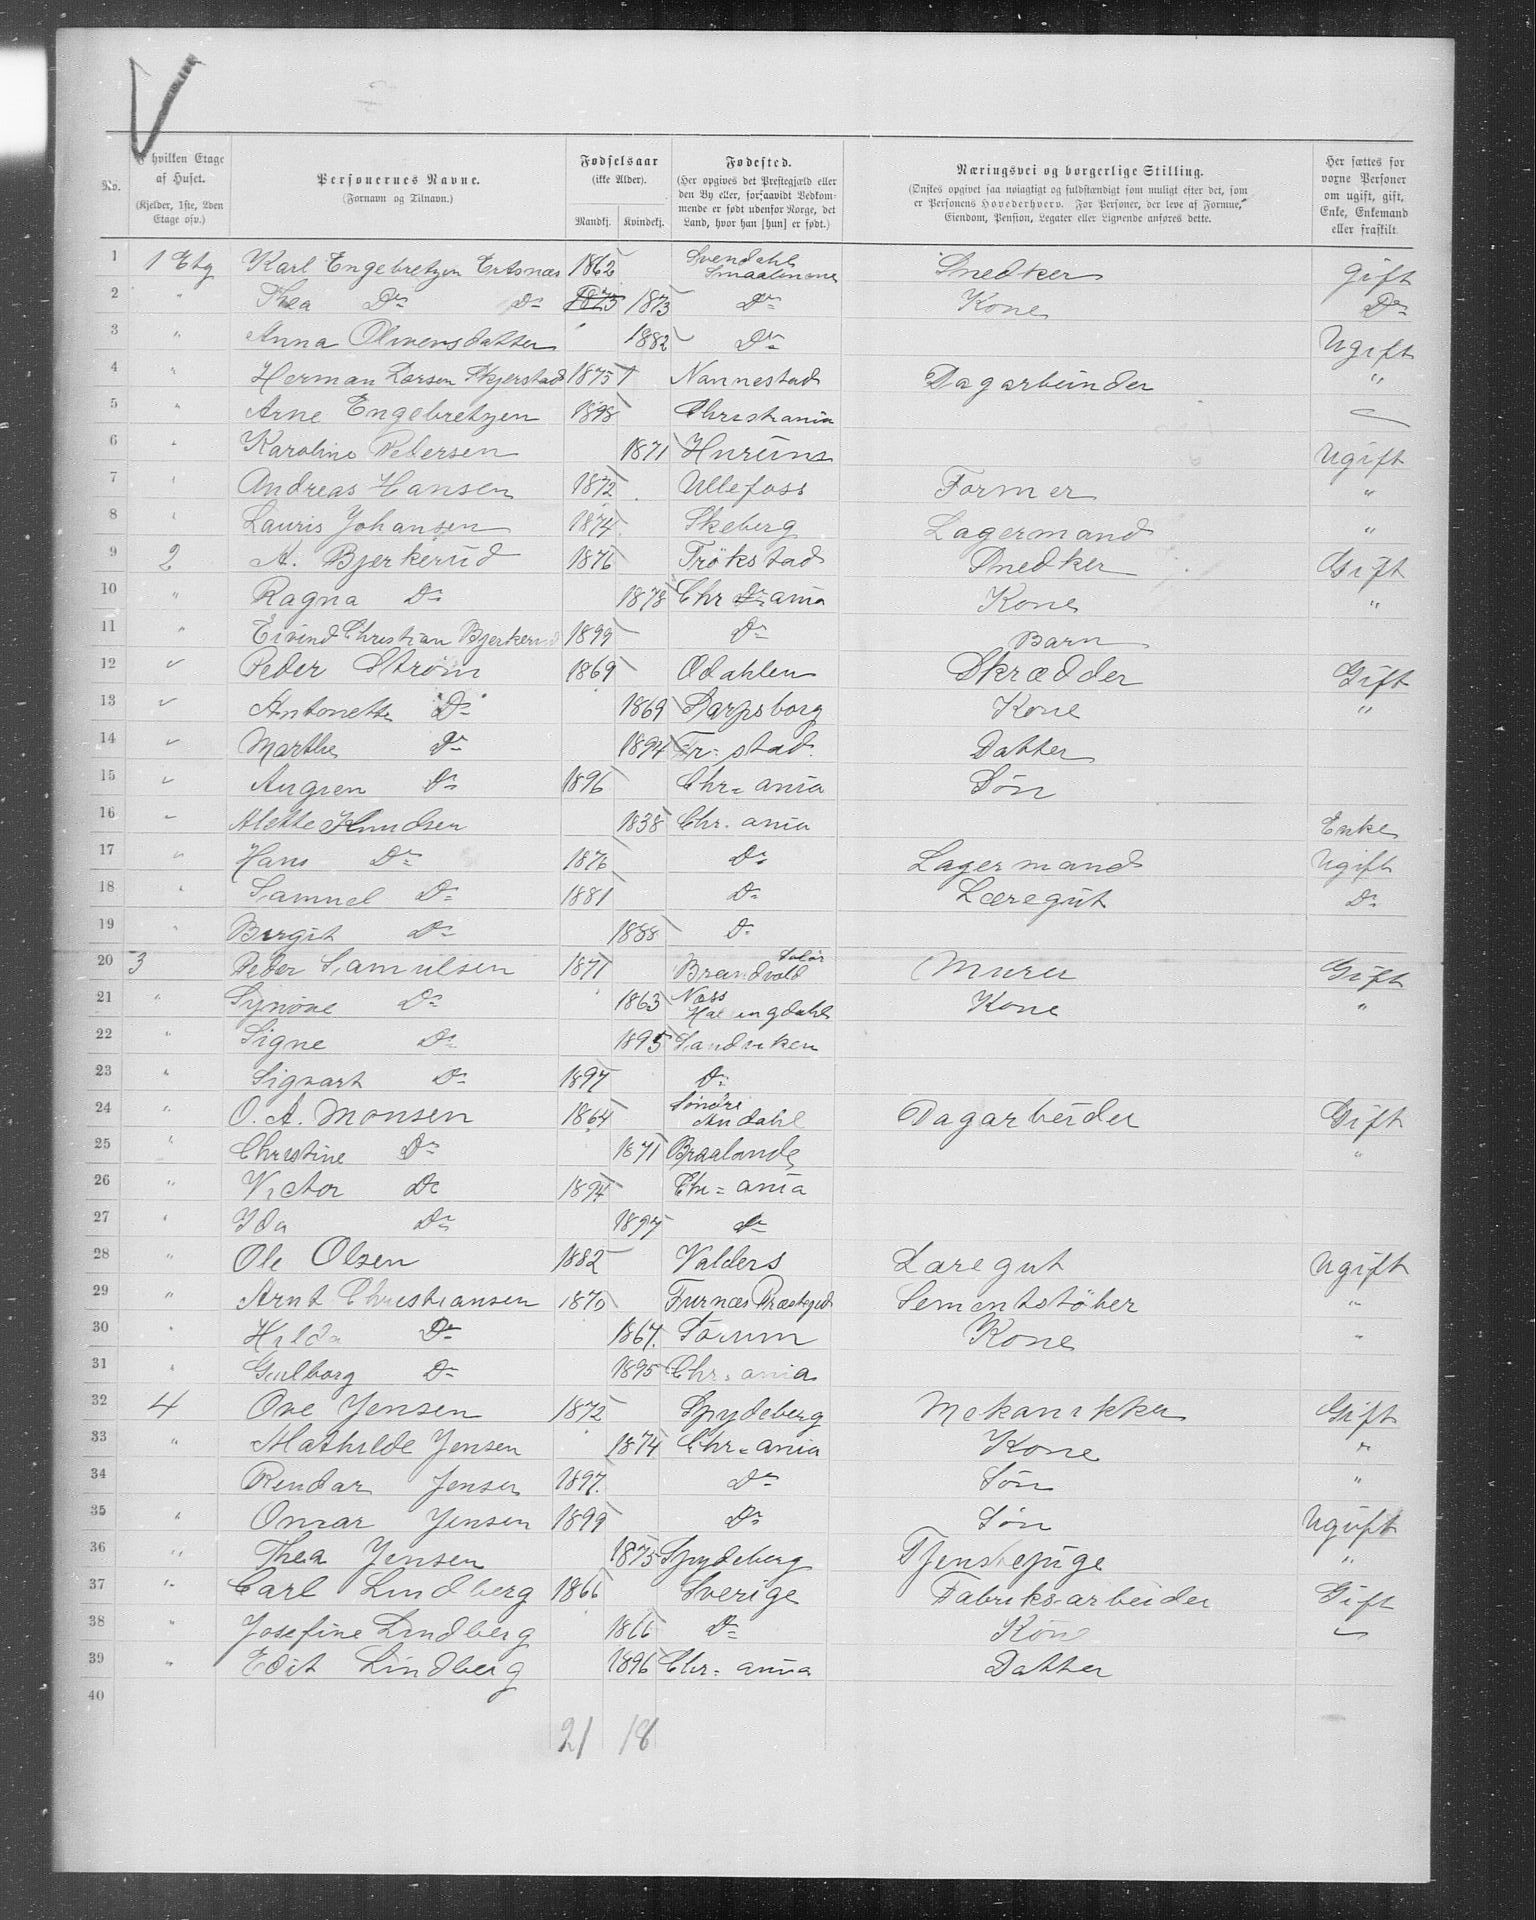 No.
I hvilken Etage af Huset.
(Kjelder, 1ste, 2den Etage osv.)
Personernes Navne.
(Fornavn og Tilnavn.)
Fødselsaar
(ikke Alder).
Mandkj. Kvindekj.
Fødested.
(Her opgives det Prestegjæld eller den By eller, forsaavidt Vedkommende er født udenfor Norge, det Land, hvor han [hun] er født.)
Næringsvei og borgerlige Stilling.
(Ønskes opgivet saa nøiagtigt og fuldstændigt som muligt efter det, som er Personens Hovederhverv. For Personer, der leve af Formue, Eiendom, Pension, Legater eller Lignende anføres dette.
Her sættes for voxne Personer om ugift, gift, Enke, Enkemand eller fraskilt.
1 1 Etg Karl Engebretzen 1862 Svendahl Smaalenene Snedker gift
2 " Thea Do Do 1873 1873 Do Kone Do
3 " Anna Olivensdatter 1882 Do Ugift
4 " Herman Larsen 1875 Nannestad Dagarbeider "
5 " Arne Engebretzen 1898 Christiania
6 " Karoline Pedersen 1871 Ugift
7 " Andreas Hansen 1872 Ullefoss Former "
8 " Lauris Johansen 1874 Skeberg Lagermand "
9 2 A. Bjerkerud 1876 Trökstad Snedker Gift
10 " Ragna Do 1878 Chr ania Kone "
11 " Eivind Christian Bjerkerud 1899 Do Barn
12 " Peder Strøm 1869 Odahlen Skrædder Gift
13 " Antonette Do 1869 Sarpsborg Kone "
14 " Marthe Do 1894 Fr= stad Datter
15 " Do 1896 Chr= ania Søn
16 " Alette Knudsen 1838 Chr. ania Enke
17 " Hans Do 1876 Do Lagermand Ugift
18 " Samuel Do 1881 Do Læregut Do
19 " Birgit Do 1888 Do
20 3 Peder Samulsen 1871 Brandvold Solør Murer Gift
21 " Synøve Do 1863 Næss Hallingdahl Kone "
22 " Signe Do 1895 Sandviken
23 " Sigvart Do 1897 Do
24 " O. A. Monsen 1864 Dagarbeider Gift
25 " Christine Do 1871 "
26 " Victor Do 1894 Chr= ania
27 " Ida Do 1897 Do
28 " Ole Olsen 1882 Valders Læregut Ugift
29 " Arnt Christiansen 1870 Furnæs Præstegjd Sementstöber "
30 " Hilda Do 1867. Sørum Kone "
31 " Gulborg Do 1895 Chr. ania
32 4 Ove Jensen 1872 Spydeberg Mekanikker Gift
33 " Mathilde Jensen 1874 Chr= ania Kone "
34 Reidar Jensen 1897. Do Søn "
35 " Omar Jensen 1899 Do Søn Ugift
36 " Thea Jensen 1875 Spydeberg Tjenstepige "
37 " Carl Lindberg 1866 Sverige Fabriksarbeider Gift
38 " Josefine Lindberg 1866 Do Kone "
39 " Edit Lindberg 1896 Chr= ania Datter
40
21 18